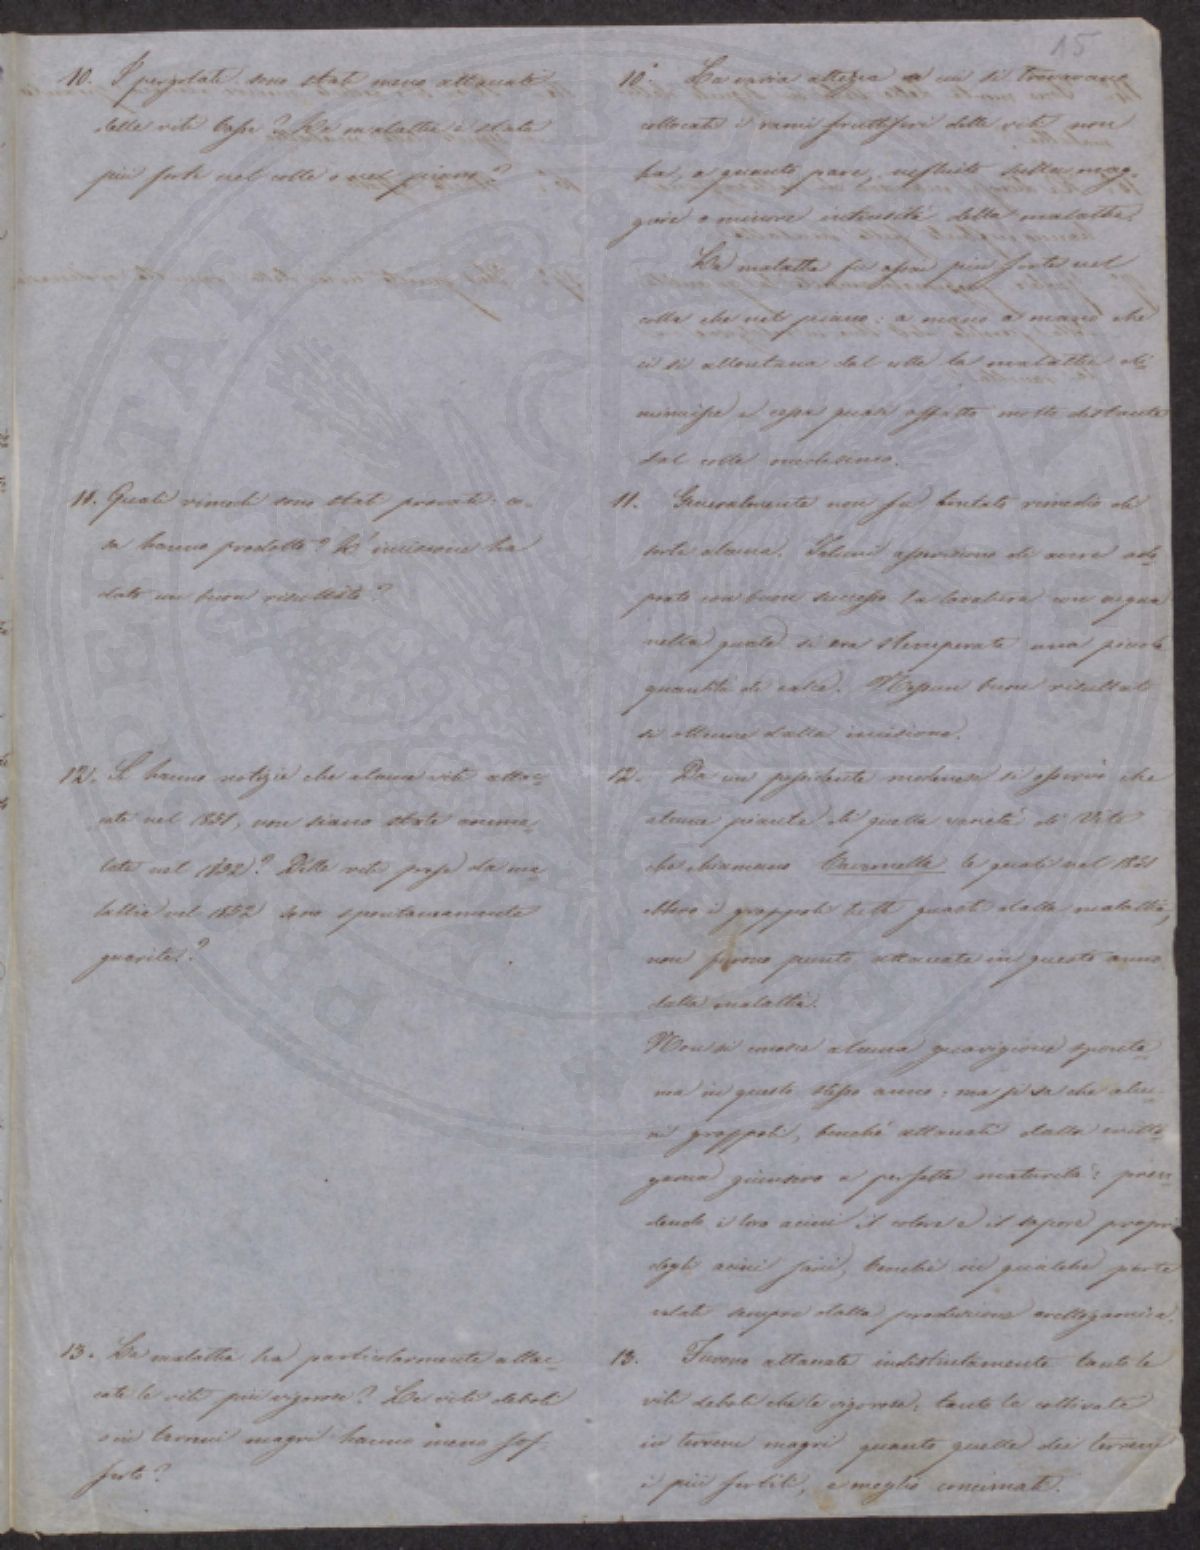 15
10. I pergolati sono stati meno attaccati
delle viti basse? La malattia è stata
più forte nel colle o nel piano?
10. La varia altezza a cui si trovavano
collocati i rami fruttiferi delle viti non
ha, a quanto pare, influito sulla mag-
giore o minore intensità della malattia.
La malattia fu assai più forte nel
colle che nel piano: a mano a mano che
ci si allontana dal colle la malattia di-
minuisce e cessa quasi affatto molto distante
dal colle medesimo.
11. Quali rimedi sono stati provati: co-
sa hanno prodotto? L'incisione ha
dato un buon risultato?
11. Generalmente non fu tentato rimedio di
sorta alcuna. Taluni asseriscono di avere ado-
prato con buon successo la lavatura con acqua
nella quale si era stemperata una piccola
quantità di calce. Nessun buon risultato
si ottenne dalla incisione.
12. Si hanno notizie che alcune viti attac-
cate nel 1851, non siano state amma-
late nel 1852? Delle viti prese da ma-
lattia nel 1852 sono spontaneamente
guarite?
12. Da un possidente modenese si osservò che
alcune piante di quella varietà di Viti
che chiamano le quali nel 1851
ebbero i grappoli tutti guasti dalla malattia,
non furono punto attaccate in questo anno
dalla malattia.
Non si conosce alcuna guarigione sponta-
nea in questo stesso anno: ma si sa che alcu-
ni grappoli, benché attaccati dalla critto-
gama giunsero a perfetta maturità: pren-
dendo i loro acini il colore e il sapore proprio
degli acini sani, benché in qualche parte
velati sempre dalla produzione crittogamica.
13. La malattia ha particolarmente attac-
cate le viti più vigorose? Le viti deboli
o in terreni magri hanno meno sof-
ferto?
13. Furono attaccate indistintamente tanto le
viti deboli che le vigorose: tanto le coltivate
in terreni magri quanto quelle dei terren-
i più fertili, e meglio concimati.